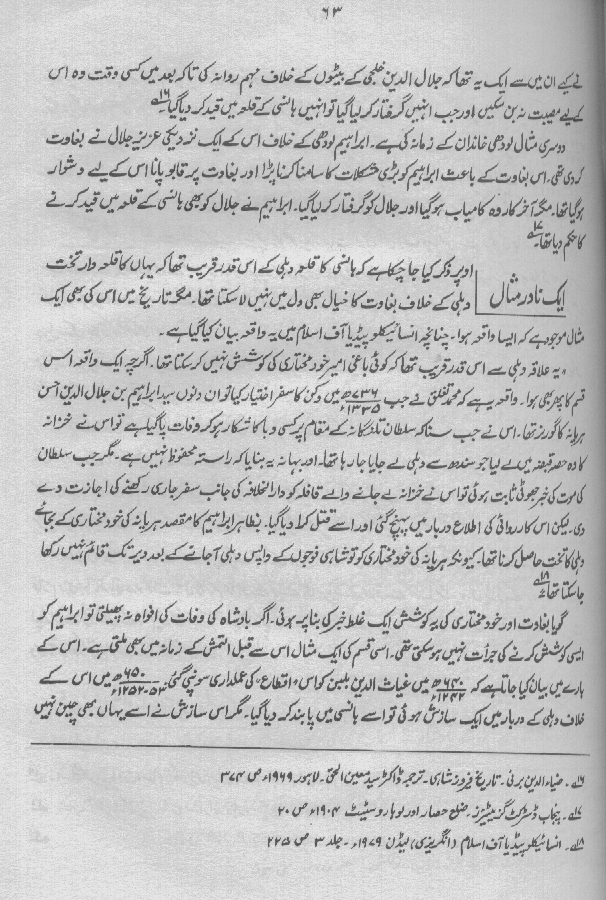 ۶۳
نے کیے ان میں سے ایک یہ تھا کہ جلال الدین خلجی کے بیٹوں کے خلاف مہم روانہ کی تاکہ بعد میں کسی وقت وہ اس
کے لیے مصیبت نہ بن سکیں اور جب انہیں گرفتار کر لیا گیا تو انہیں ہانسی کے قلعہ میں قید کر دیا گیا۔ ۱۶
دوسری مثال لودھی خاندان کے زمانہ کی ہے۔ ابراہیم لودھی کے خلاف اس کے ایک نزدیکی عزیز جلال نے بغاوت
کر دی تھی۔ اس بغاوت کے باعث ابراہیم کو بڑی مشکلات کا سامنا کرنا پڑا اور بغاوت پر قابو پانا اس کے لیے دشوار
ہو گیا تھا۔ مگر آخر کار وہ کامیاب ہو گیا اور جلال کو گرفتار کر لیا گیا۔ ابراہیم نے جلال کو بھی ہانسی کے قلعہ میں قید کرنے
کا حکم دیا تھا۔ ۱۷
ایک نادر مثال
اوپر ذکر کیا جا چکا ہے کہ ہانسی کا قلعہ دہلی کے اس قدر قریب تھا کہ یہاں کا قلعہ دار تخت
دہلی کے خلاف بغاوت کا خیال بھی دل میں نہیں لا سکتا تھا۔ مگر تاریخ میں اس کی بھی ایک
مثال موجود ہے کہ ایسا واقعہ ہوا۔ چنانچہ انسائیکلوپیڈیا آف اسلام میں یہ واقعہ بیان کیا گیا ہے۔
"یہ علاقہ دہلی سے اس قدر قریب تھا کہ کوئی باغی امیر خود مختاری کی کوشش نہیں کر سکتا تھا۔ اگرچہ ایک واقعہ اس
قسم کا پھر بھی ہوا۔ واقعہ یہ ہے کہ محمد تغلق نے جب ۷۳۶ھ / ۱۳۳۵ء میں دکن کا سفر اختیار کیا تو ان دنوں سید ابراہیم بن جلال الدین احسن
ہریانہ کا گورنر تھا۔ اس نے جب سنا کہ سلطان تلنگانہ کے مقام پر کسی وبا کا شکار ہو کر وفات پا گیا ہے تو اس نے خزانہ
کا وہ حصہ قبضہ میں لے لیا جو سندھ سے دہلی لے جایا جا رہا تھا۔ اور بہانہ یہ بنایا کہ راستہ محفوظ نہیں ہے۔ مگر جب سلطان
کی موت کی خبر جھوٹی ثابت ہوئی تو اس نے خزانہ لے جانے والے قافلہ کو دارالخلافہ کی جانب سفر جاری رکھنے کی اجازت دے
دی۔ لیکن اس کارروائی کی اطلاع دربار میں پہنچ گئی اور اسے قتل کرا دیا گیا۔ بظاہر ابراہیم کا مقصد ہریانہ کی خود مختاری کے بجائے
دہلی کا تخت حاصل کرنا تھا، کیونکہ ہریانہ کی خود مختاری کو تو شاہی فوجوں کے واپس دہلی آ جانے کے بعد دیر تک قائم نہیں رکھا
جا سکتا تھا۔ ۱۸
گویا بغاوت اور خود مختاری کی یہ کوشش ایک غلط خبر کی بنا پر ہوئی۔ اگر بادشاہ کی وفات کی افواہ نہ پھیلتی تو ابراہیم کو
ایسی کوشش کرنے کی جرأت نہیں ہو سکتی تھی۔ اسی قسم کی ایک مثال اس سے قبل التمش کے زمانہ میں بھی ملتی ہے۔ اس کے
بارے میں بیان کیا جاتا ہے کہ ۶۴۰ھ / ۱۲۴۲ء میں غیاث الدین بلبن کو اس "اقطاع" کی عملداری سونپی گئی۔ ۶۵۰ھ / ۵۳-۱۲۵۲ء میں اس کے
خلاف دہلی کے دربار میں ایک سازش ہوئی تو اسے ہانسی میں پابند کر دیا گیا۔ مگر اس سازش نے اسے یہاں بھی چین نہیں
۱۶۔ ضیاءالدین برنی۔ تاریخ فیروز شاہی۔ ترجمہ ڈاکٹر سید معین الحق۔ لاہور ۱۹۶۹ء ص ۳۷۴
۱۷۔ پنجاب ڈسٹرکٹ گزیٹیرز۔ ضلع حصار اور لوہارو سٹیٹ ۱۹۰۴ء ص ۲۰
۱۸۔ انسائیکلوپیڈیا آف اسلام (انگریزی) لیڈن ۱۹۷۹ء۔ جلد ۳ ص ۲۲۵